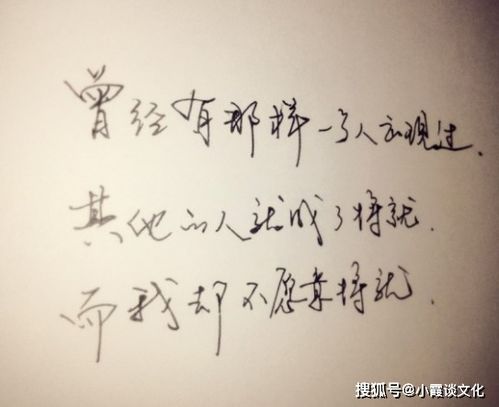 曾经有那样一个人出现过.
其他的人就成了将就.
而我却不愿意将就.
搜狐号@小霞谈文化